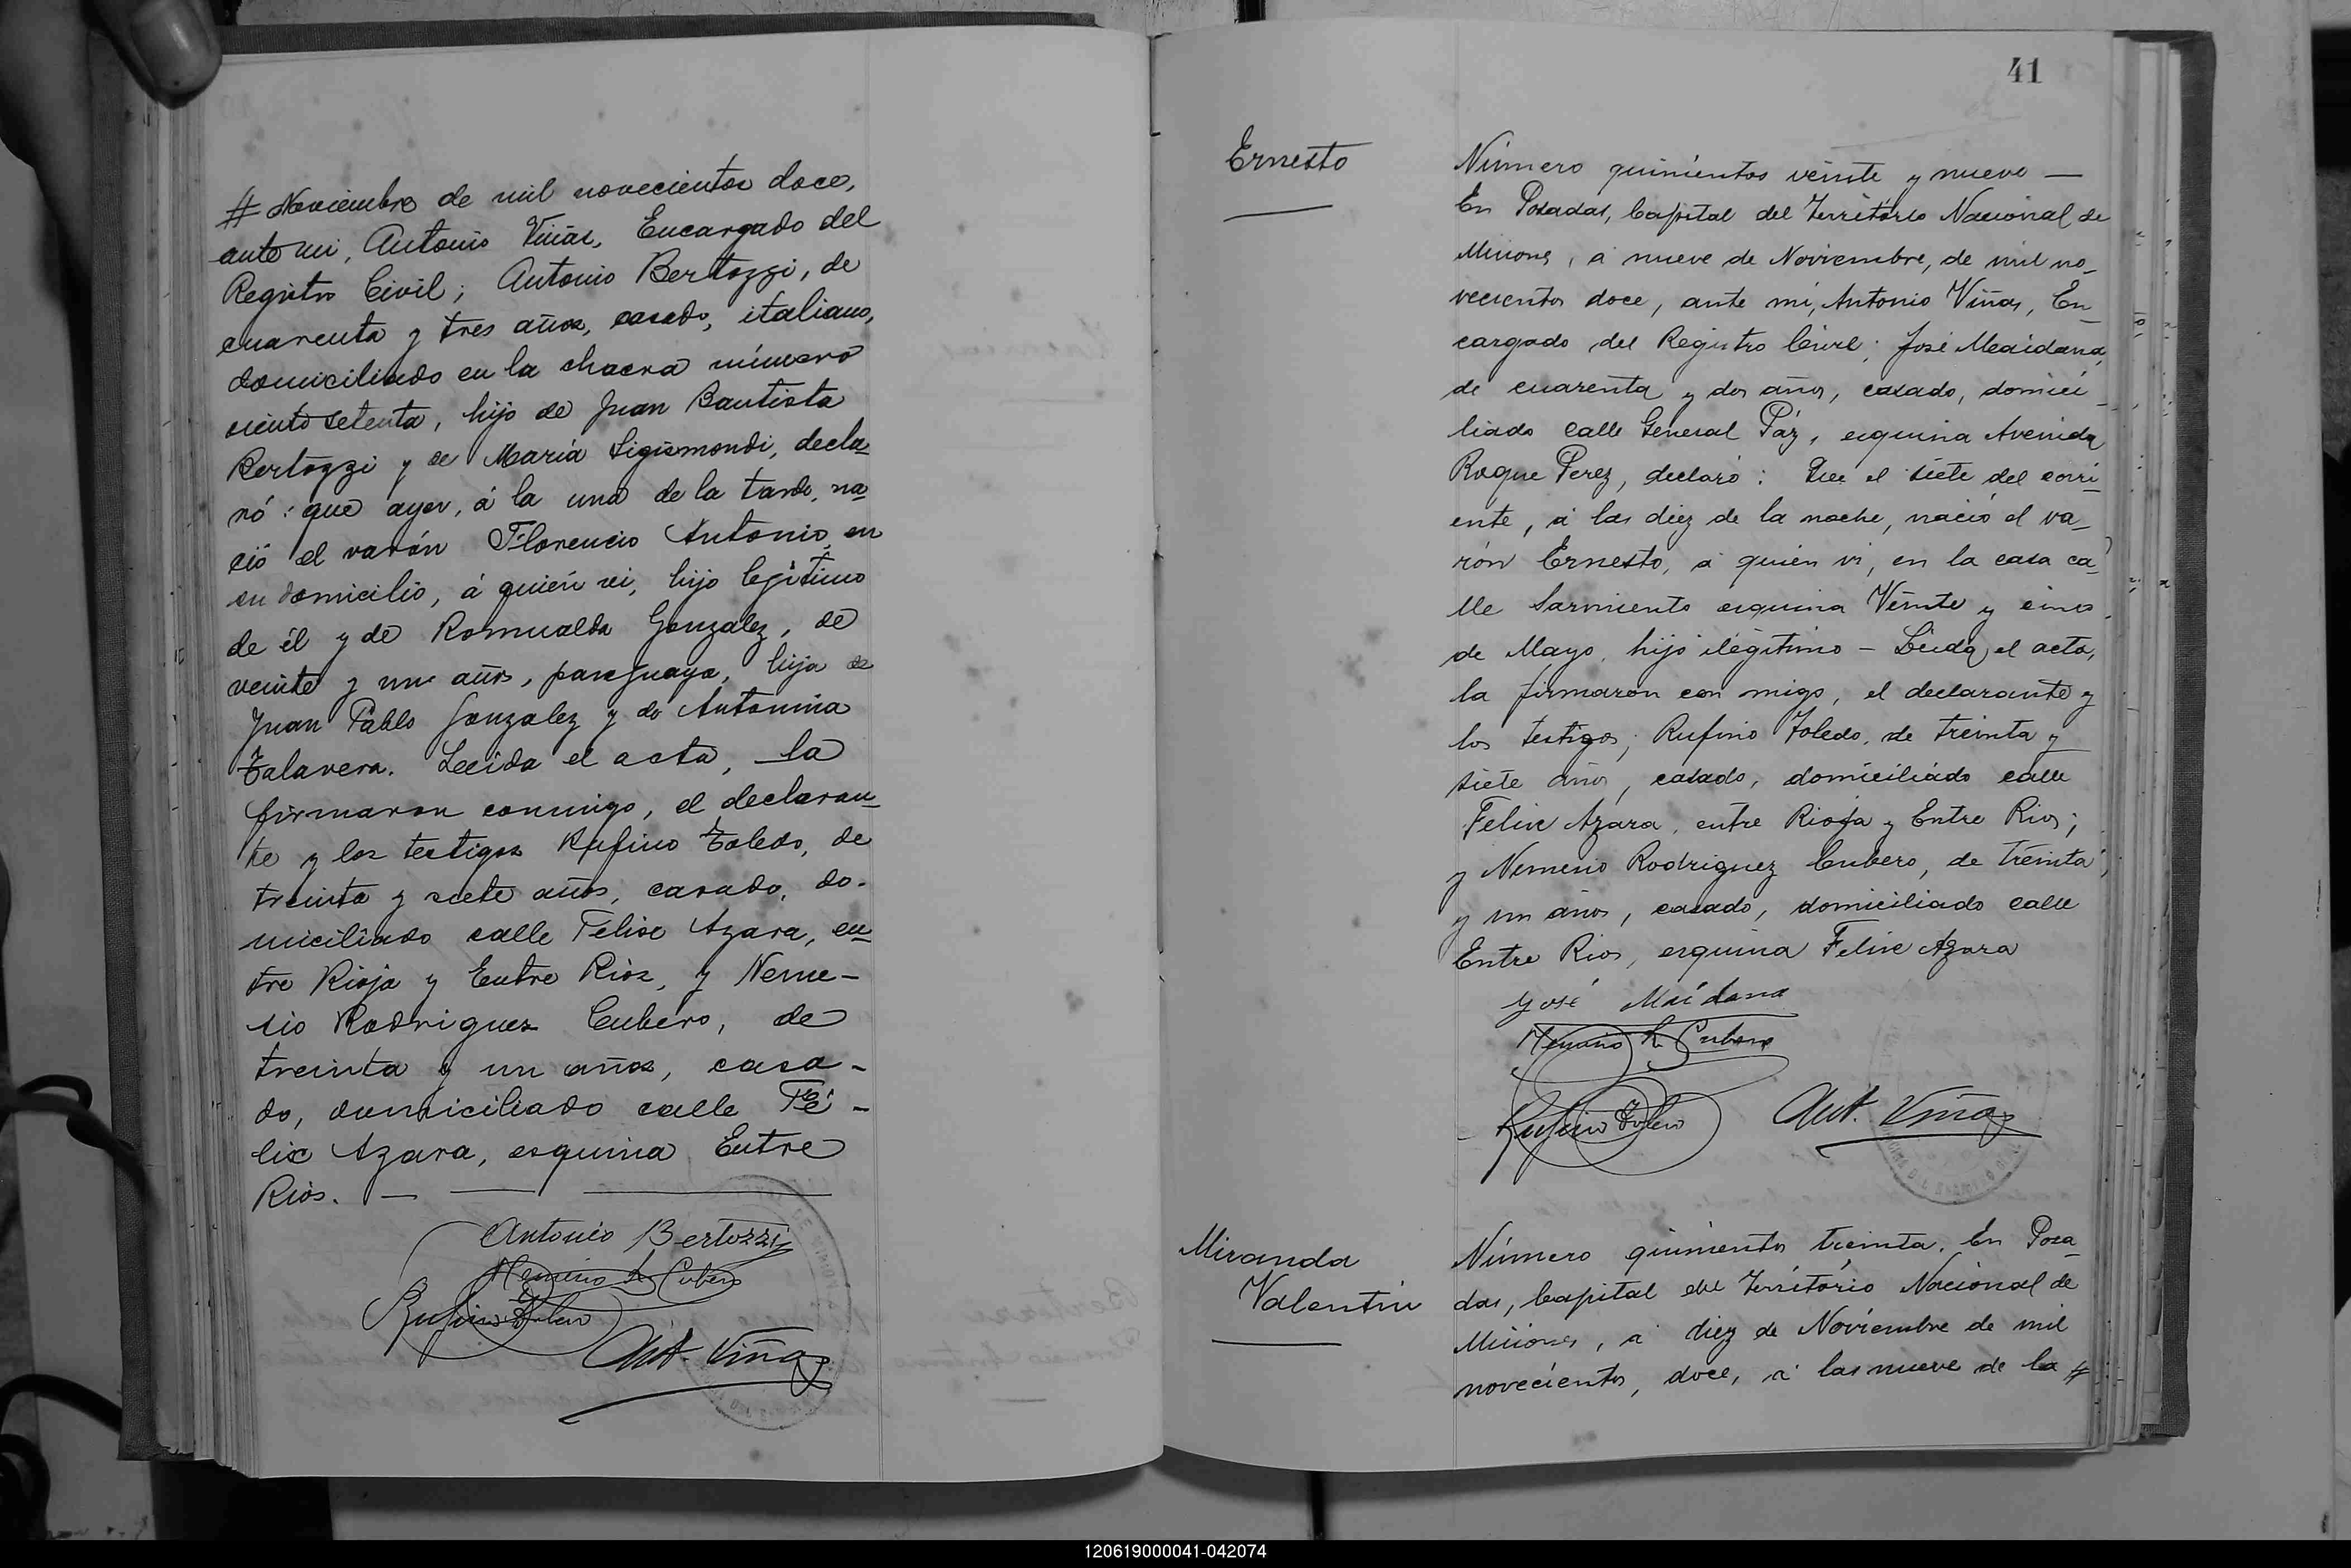 # Noviembre de mil novecientos doce,
ante mi, Antonio Viñas, Encargado del
Registro Civil; Antonio Bertozzi, de
cuarenta y tres años, casado, italiano,
domiciliado en la chacra número
ciento setenta, hijo de Juan Bautista
Bertozzi y de María Sigismondi, decla-
ró: que ayer, á la una de la tarde, na-
ció el varón Florencio Antonio, en
su domicilio, á quién vi, hijo legítimo
de él y de Romualda Gonzalez, de
veinte y un años, paraguaya, hija de
Juan Pablo Gonzalez y de Antonina
Talavera. Leida el acta, la
firmaron conmigo, el declaran-
te y los testigos Rufino Toledo, de
treinta y siete años, casado, do-
miciliado calle Felix Azara, en-
tre Rioja y Entre Rios, y Neme-
sio Rodriguez Cubero, de
treinta y un años, casa-
do, domiciliado calle Fé-
lix Azara, esquina Entre
Rios.
Antonio Bertozzi
Nemesio R. Cubero
Rufino Toledo
Ant. Viñas
41
Ernesto
Número quinientos veinte y nueve —
En Posadas, Capital del Territorio Nacional de
Misiones, á nueve de Noviembre, de mil no-
vecientos doce, ante mi, Antonio Viñas, En-
cargado del Registro Civil; José Maidana,
de cuarenta y dos años, casado, domici-
liado calle General Páz, esquina Avenida
Roque Perez, declaró: Que el siete del corri-
ente, á las diez de la noche, nació el va-
rón Ernesto, á quien vi, en la casa ca-
lle Sarmiento esquina Veinte y cinco
de Mayo, hijo ilegítimo - Leida el acta,
la firmaron con migo, el declarante y
los testigos; Rufino Toledo, de treinta y
siete años, casado, domiciliado calle
Felix Azara, entre Rioja y Entre Rios;
y Nemesio Rodriguez Cubero, de treinta
y un años, casado, domiciliado calle
Entre Rios, esquina Felix Azara
José Maidana
Nemesio R. Cubero
Rufino Toledo
Ant. Viñas
Miranda
Valentin
Número quinientos treinta. En Posa-
das, Capital del Territorio Nacional de
Misiones, á diez de Noviembre de mil
novecientos, doce, á las nueve de la #
120619000041-042074